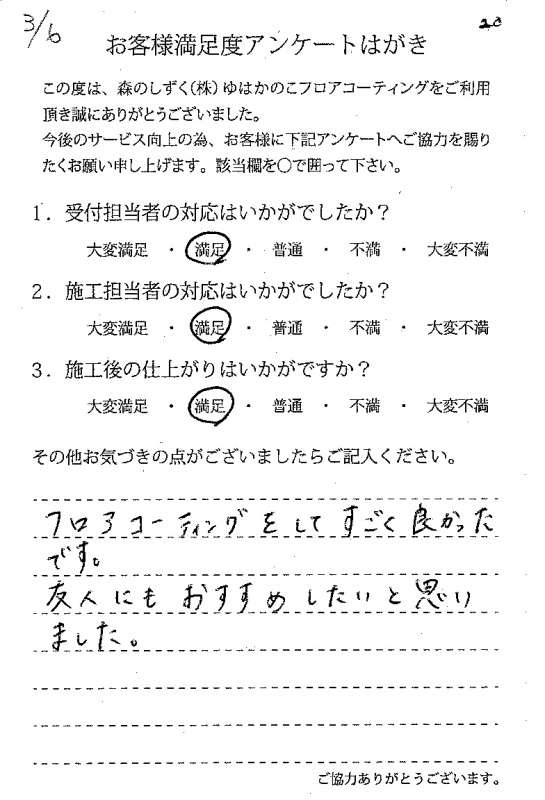 3/6
20
お客様満足度アンケートはがき
この度は、森のしずく(株)ゆはかのこフロアコーティングをご利用
頂き誠にありがとうございました。
今後のサービス向上の為、お客様に下記アンケートへご協力を賜り
たくお願い申し上げます。該当欄を〇で囲って下さい。
1．受付担当者の対応はいかがでしたか？
大変満足 ・ 満足 ・ 普通 ・ 不満 ・ 大変不満
2．施工担当者の対応はいかがでしたか？
大変満足 ・ 満足 ・ 普通 ・ 不満 ・ 大変不満
3．施工後の仕上がりはいかがですか？
大変満足 ・ 満足 ・ 普通 ・ 不満 ・ 大変不満
その他お気づきの点がございましたらご記入ください。
フロアコーティングをしてすごく良かった
です。
友人にもおすすめしたいと思い
ました。
ご協力ありがとうございます。